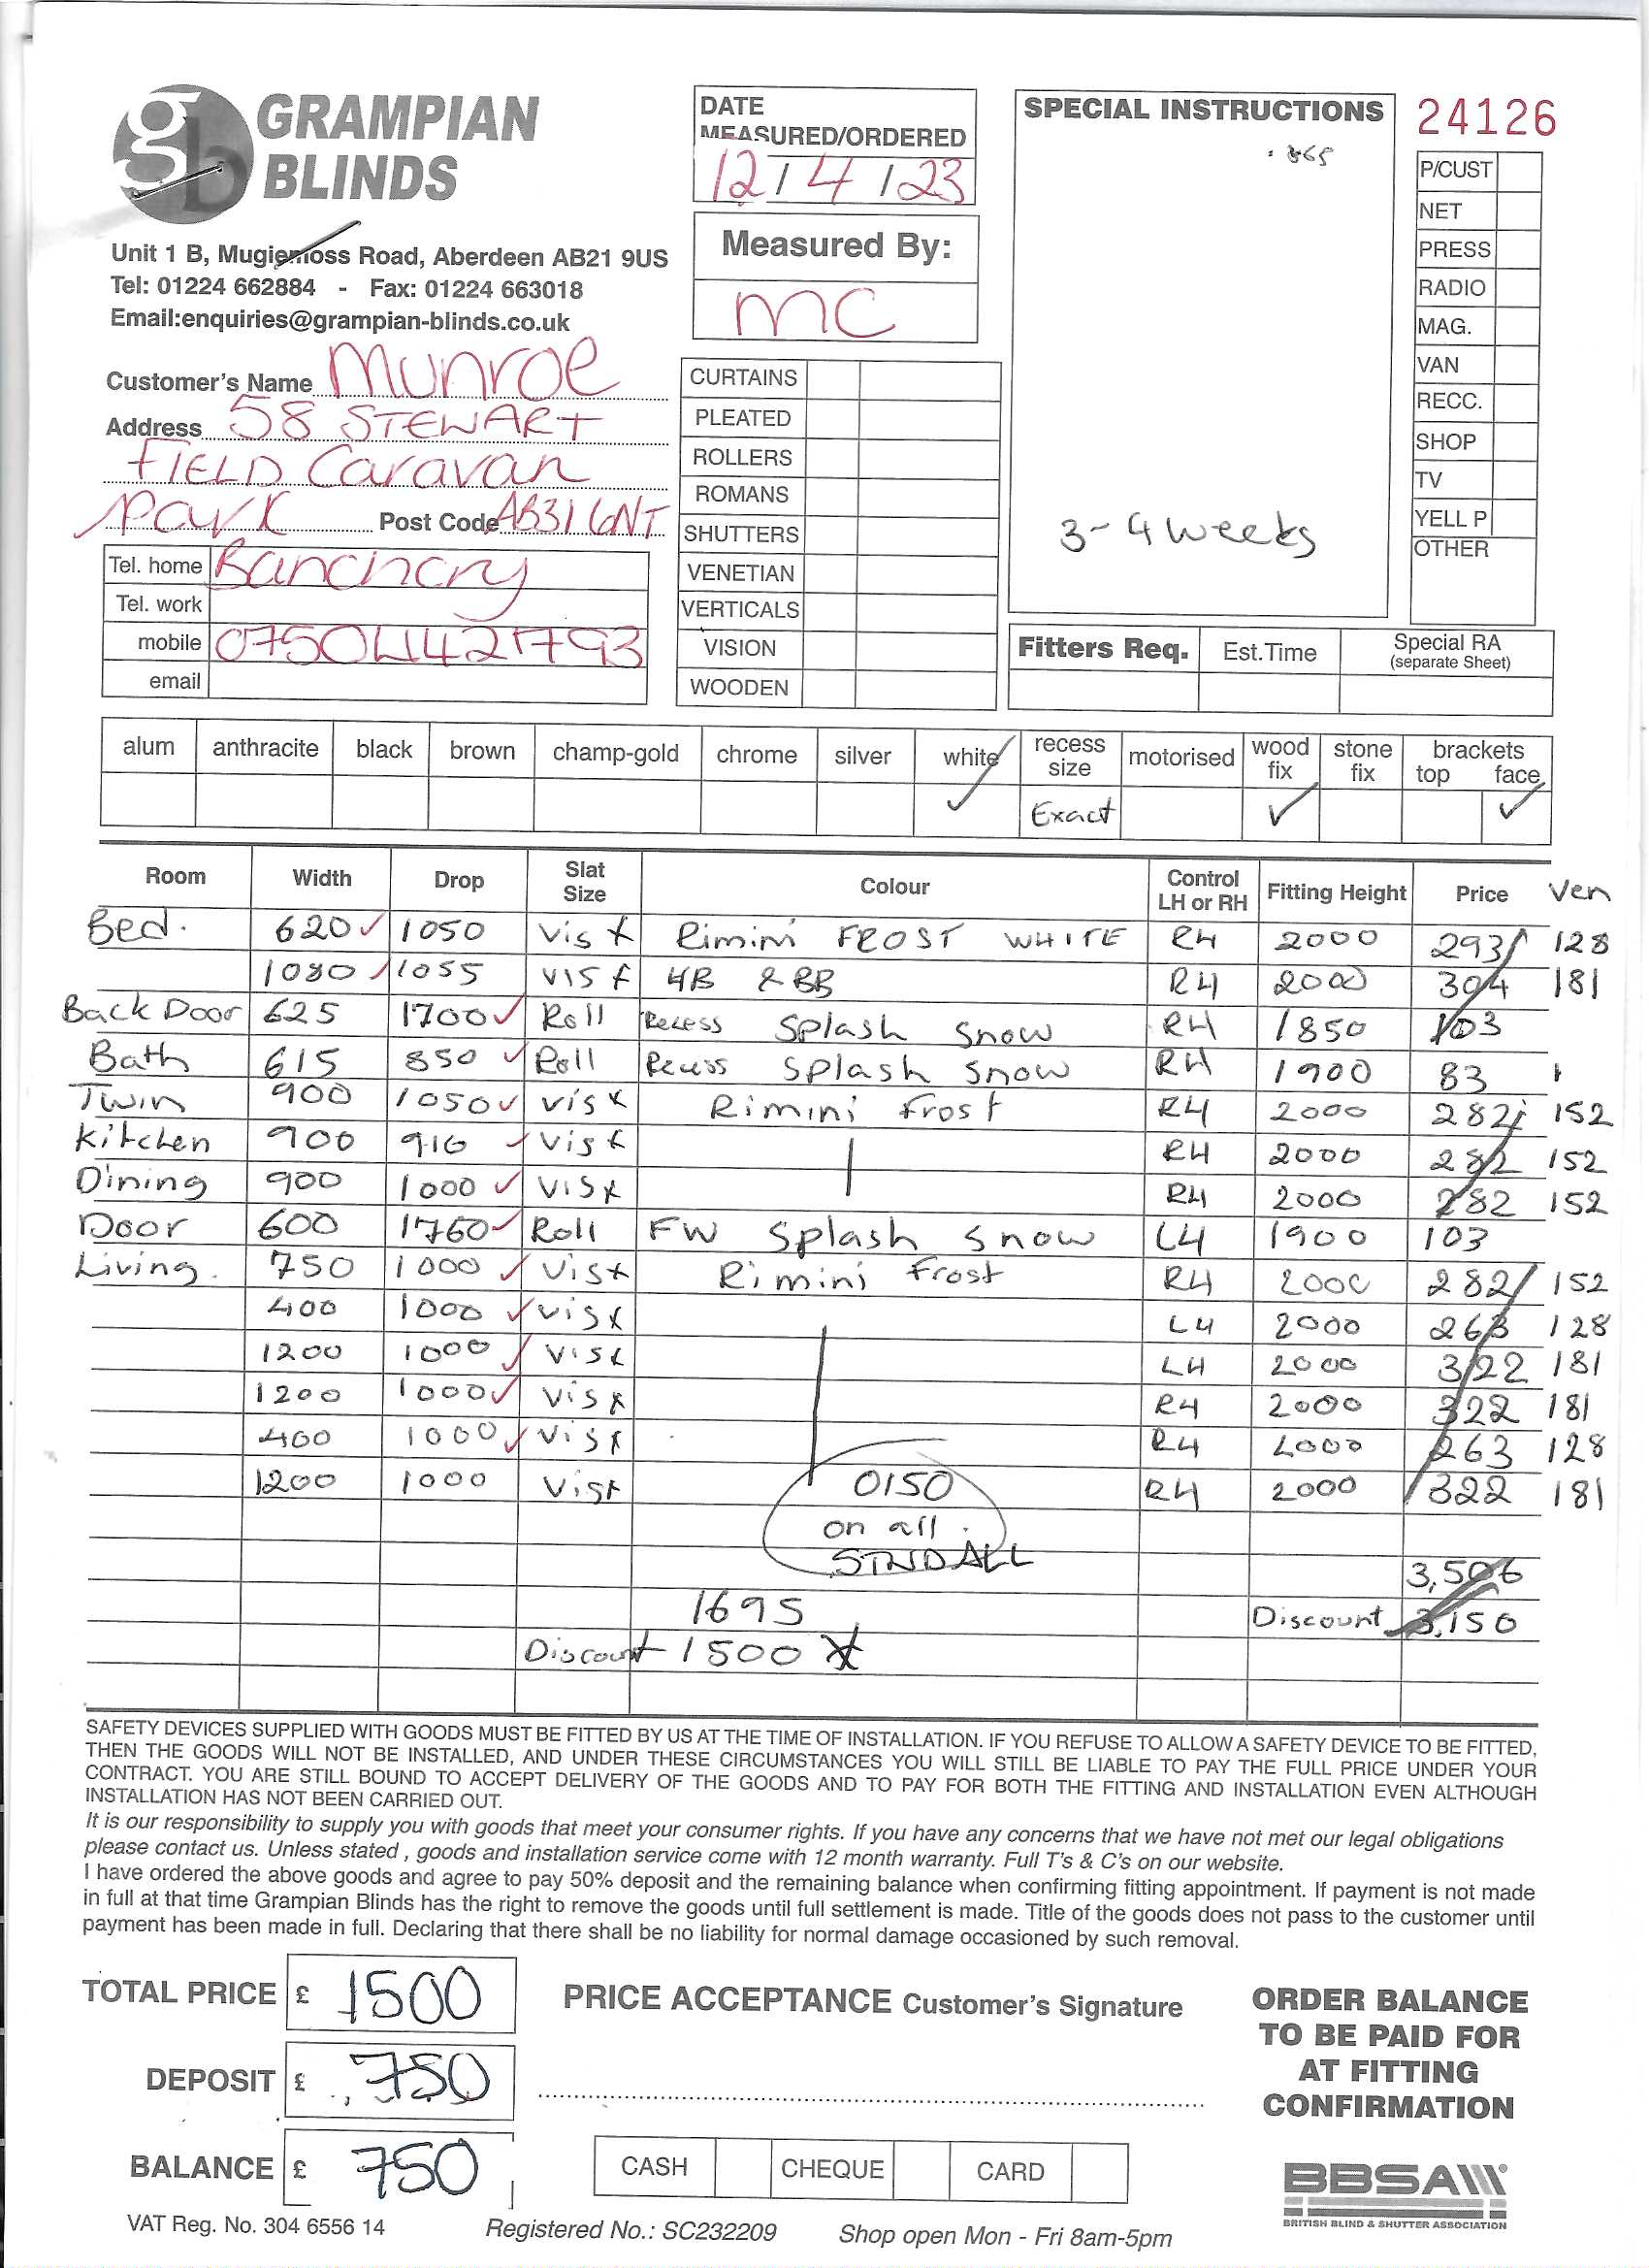 GRAMPIAN BLINDS
Unit 1 B, Mugiemoss Road, Aberdeen AB21 9US
Tel: 01224 662884 - Fax: 01224 663018
Email:enquiries@grampian-blinds.co.uk
Customer's Name Munroe
Address 58 STEWART
FIELD Caravan
Park Post Code AB31 6NT
Tel. home Banchory
Tel. work
mobile 07504421793
email
DATE
MEASURED/ORDERED
12/4/23
Measured By:
MC
CURTAINS
PLEATED
ROLLERS
ROMANS
SHUTTERS
VENETIAN
VERTICALS
VISION
WOODEN
SPECIAL INSTRUCTIONS
3-4 weeks
24126
P/CUST
NET
PRESS
RADIO
MAG.
VAN
RECC.
SHOP
TV
YELL P
OTHER
Fitters Req. Est.Time Special RA
(separate Sheet)
alum anthracite black brown champ-gold chrome silver white recess size motorised wood fix stone fix brackets top face
✓ Exact ✓ ✓
Room Width Drop Slat Size Colour Control LH or RH Fitting Height Price Ven
Bed. 620 ✓ 1050 Vis x Rimini FROST WHITE RH 2000 293 128
1080 1055 VIS x HB & BB RH 2000 304 181
Back Door 625 1700 ✓ Roll Recess Splash Snow RH 1850 103
Bath 615 850 ✓ Roll Recess Splash Snow RH 1900 83
Twin 900 1050 ✓ Vis x Rimini Frost RH 2000 282 152
Kitchen 900 910 ✓ Vis x RH 2000 282 152
Dining 900 1000 ✓ Vis x RH 2000 282 152
Door 600 1760 ✓ Roll FW Splash Snow LH 1900 103
Living. 750 1000 ✓ Vis x Rimini Frost RH 2000 282 152
400 1000 ✓ Vis x LH 2000 263 128
1200 1000 ✓ Vis x LH 2000 322 181
1200 1000 ✓ Vis x RH 2000 322 181
400 1000 ✓ Vis x RH 2000 263 128
1200 1000 Vis x 0150 RH 2000 322 181
on all.
STND ALL
3,506
1695 Discount 3,150
Discount 1500
SAFETY DEVICES SUPPLIED WITH GOODS MUST BE FITTED BY US AT THE TIME OF INSTALLATION. IF YOU REFUSE TO ALLOW A SAFETY DEVICE TO BE FITTED,
THEN THE GOODS WILL NOT BE INSTALLED, AND UNDER THESE CIRCUMSTANCES YOU WILL STILL BE LIABLE TO PAY THE FULL PRICE UNDER YOUR
CONTRACT. YOU ARE STILL BOUND TO ACCEPT DELIVERY OF THE GOODS AND TO PAY FOR BOTH THE FITTING AND INSTALLATION EVEN ALTHOUGH
INSTALLATION HAS NOT BEEN CARRIED OUT.
It is our responsibility to supply you with goods that meet your consumer rights. If you have any concerns that we have not met our legal obligations
please contact us. Unless stated , goods and installation service come with 12 month warranty. Full T's & C's on our website.
I have ordered the above goods and agree to pay 50% deposit and the remaining balance when confirming fitting appointment. If payment is not made
in full at that time Grampian Blinds has the right to remove the goods until full settlement is made. Title of the goods does not pass to the customer until
payment has been made in full. Declaring that there shall be no liability for normal damage occasioned by such removal.
TOTAL PRICE £ 1500
DEPOSIT £ 750
BALANCE £ 750
PRICE ACCEPTANCE Customer's Signature
CASH CHEQUE CARD
ORDER BALANCE
TO BE PAID FOR
AT FITTING
CONFIRMATION
BBSA
BRITISH BLIND & SHUTTER ASSOCIATION
VAT Reg. No. 304 6556 14 Registered No.: SC232209 Shop open Mon - Fri 8am-5pm